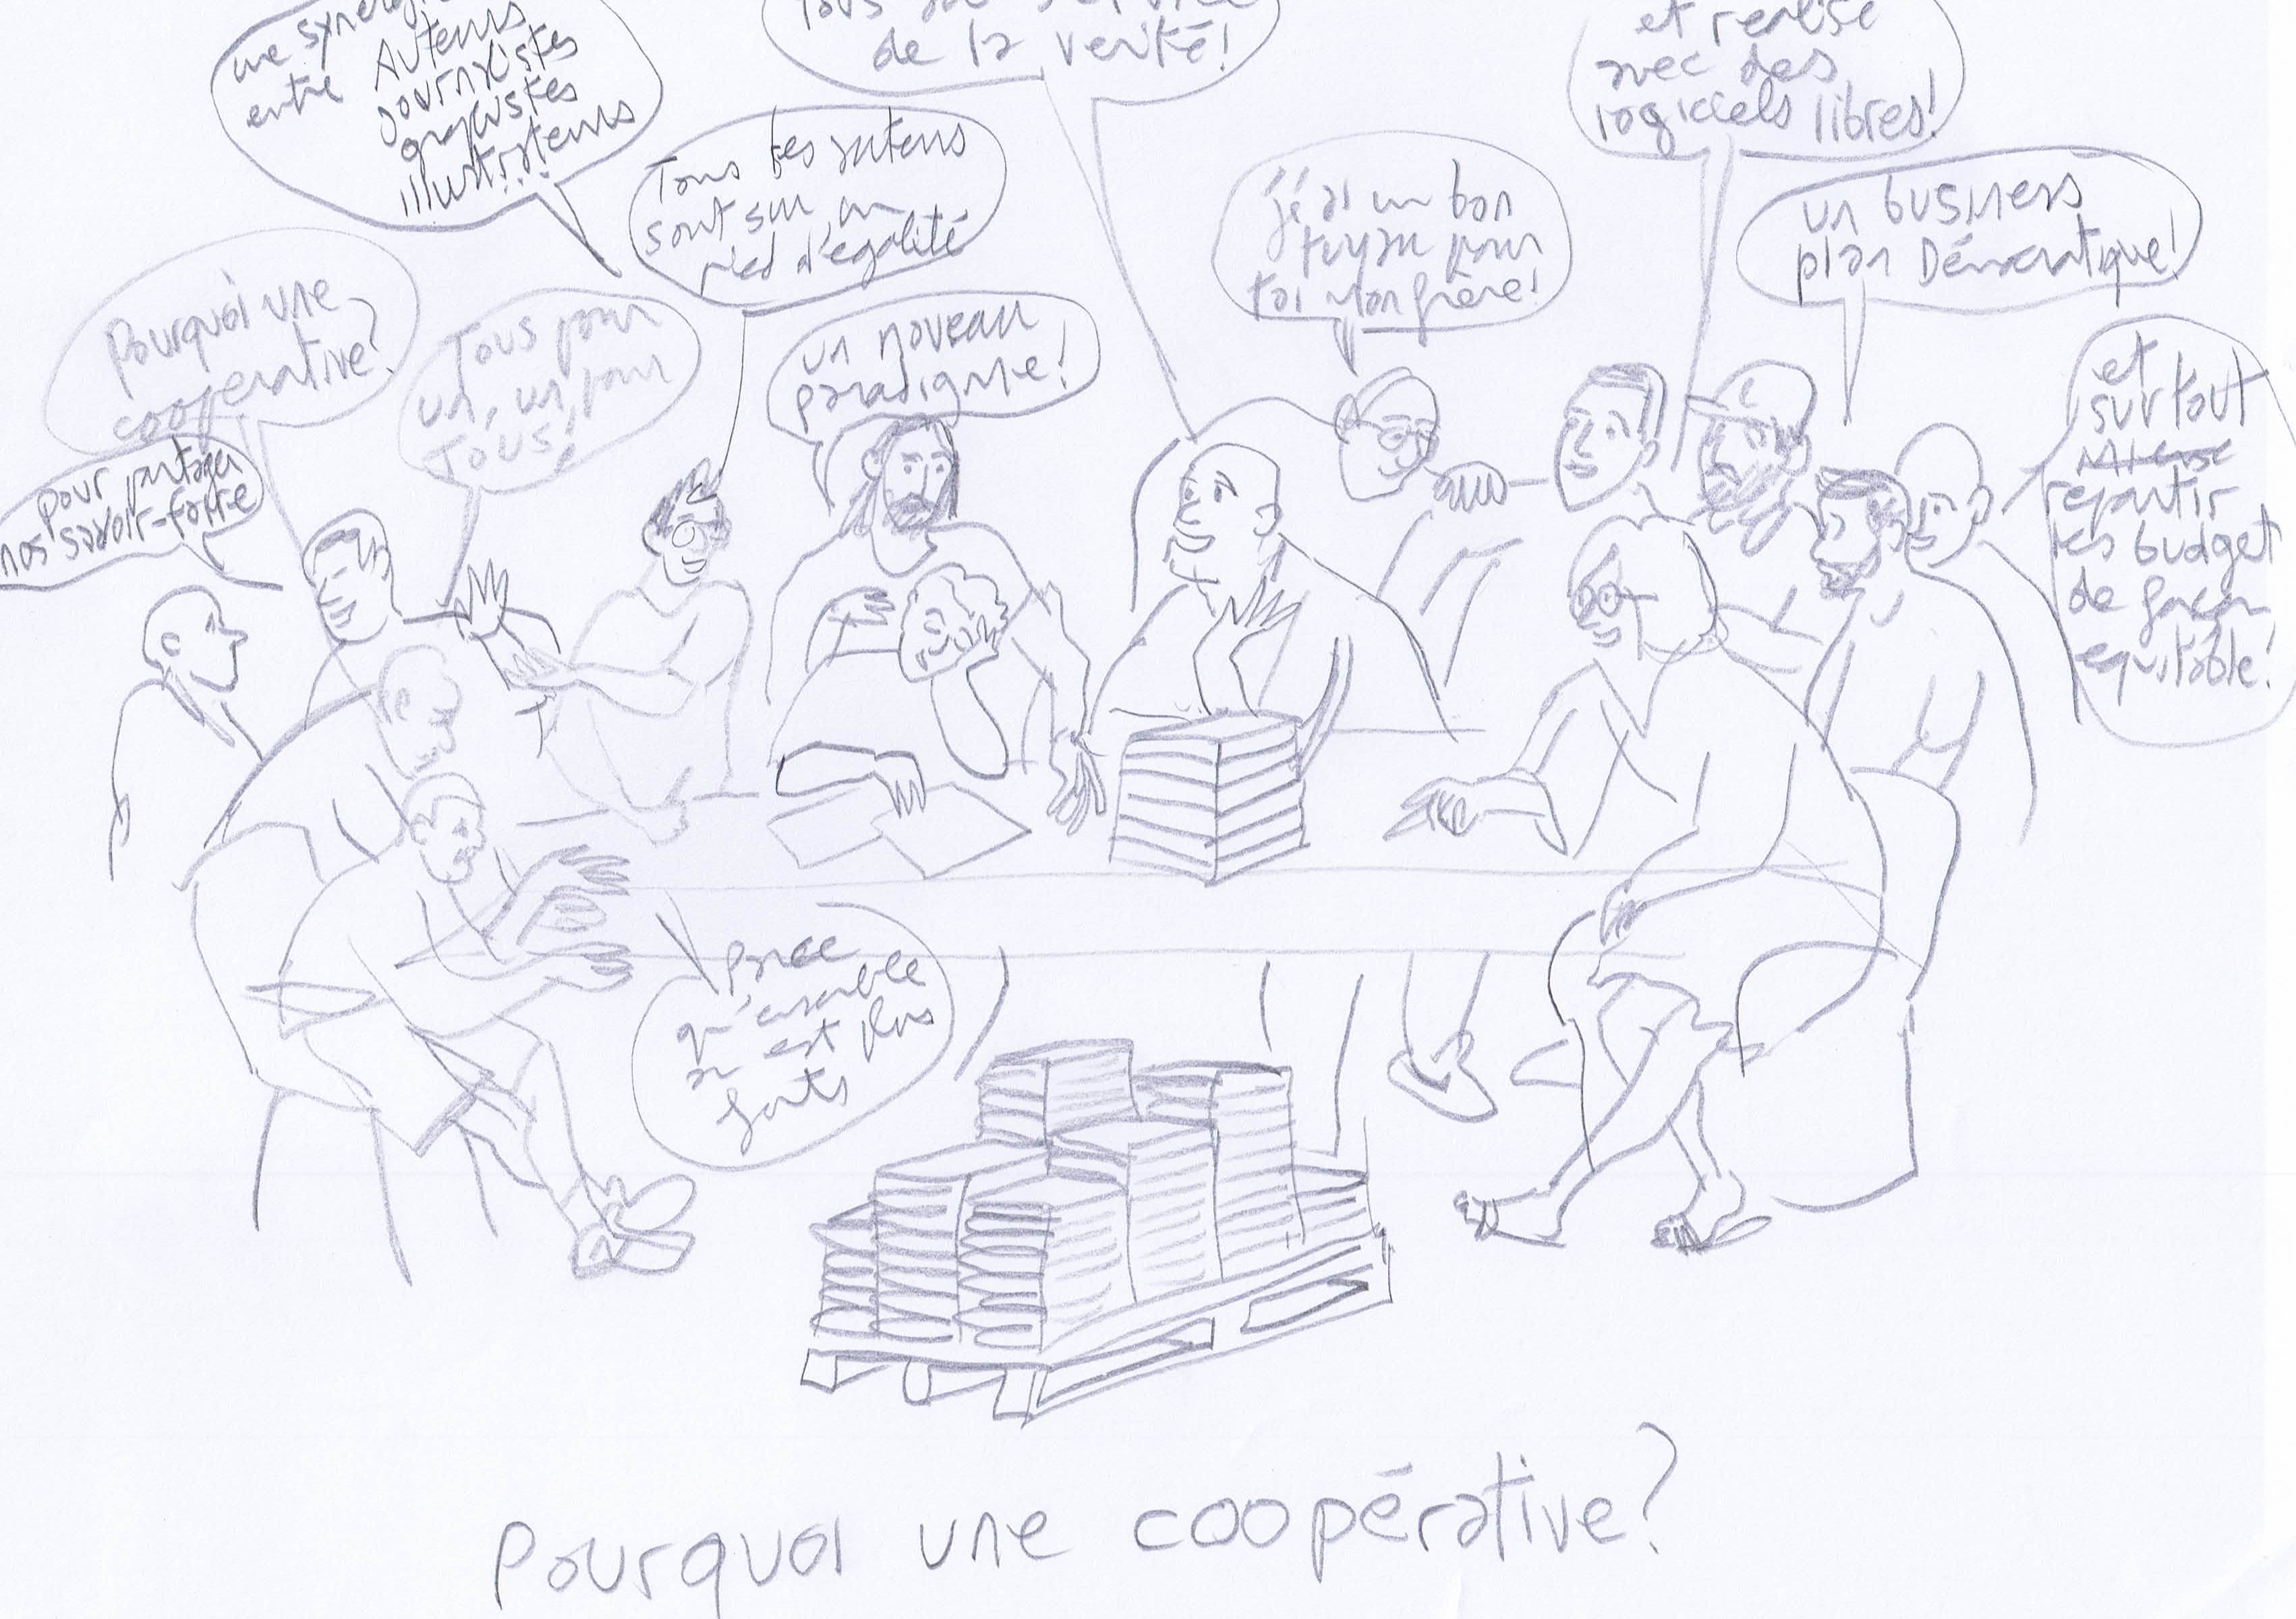 une synergie
entre Auteurs
Journalistes
graphistes
illustrateurs
Tous au service
de la vérité!
et réalisé
avec des
logiciels libres!
Tous les auteurs
sont sur un
pied d'égalité
j'ai un bon
tuyau pour
toi mon frère!
un business
plan Démocratique!
Pourquoi une
cooperative?
Tous pour
un, un pour
Tous!
un noveau
paradigme!
et
surtout
repartir
les budget
de façon
equitable!
pour partager
nos savoir-faire
parce
qu'ensemble
on est plus
forts
Pourquoi une coopérative?